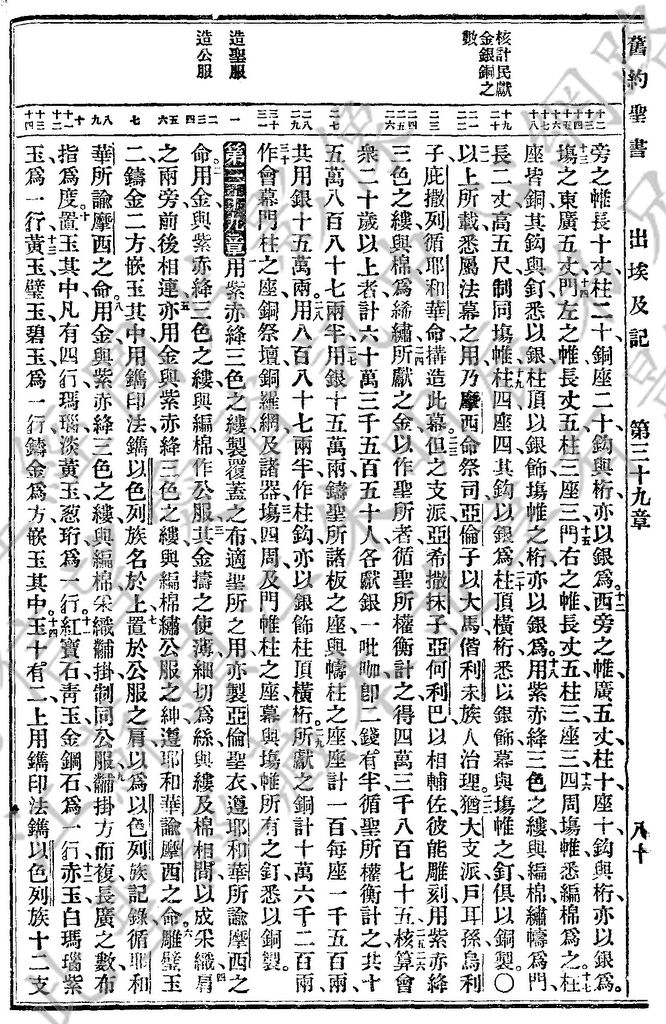 舊約聖書 出埃及記 第三十九章 八十
核計民獻金銀銅之數
造聖服
造公服
旁之帷長十丈柱二十銅座二十鈎與桁亦以銀爲西旁之帷廣五丈柱十座十鈎與桁亦以銀爲
塲之東廣五丈門左之帷長丈五柱三座三門右之帷長丈五柱三座三四周塲帷悉編棉爲之柱
座皆銅其鈎與釘悉以銀柱頂以銀飾塲帷之桁亦以銀爲用紫赤絳三色之縷與編棉繡幬爲門
長二丈高五尺制同塲帷柱四座四其鈎以銀爲柱頂橫桁悉以銀飾幕與塲帷之釘俱以銅製〇
以上所載悉屬法幕之用乃摩西命祭司亞倫子以大馬偕利未族人治理猶大支派戶耳孫烏利
子庇撒列循耶和華命搆造此幕但之支派亞希撒抹子亞何利巴以相輔佐彼能雕刻用紫赤絳
三色之縷與棉爲絺繡所獻之金以作聖所者循聖所權衡計之得四萬三千八百七十五核算會
衆二十歲以上者計六十萬三千五百五十人各獻銀一吡咖卽二錢有半循聖所權衡計之共十
五萬八百八十七兩半用銀十五萬兩鑄聖所諸板之座與幬柱之座座計一百每座一千五百兩
共用銀十五萬兩用八百八十七兩半作柱鈎亦以銀飾柱頂橫桁所獻之銅計十萬六千二百兩
作會幕門柱之座銅祭壇銅羅網及諸器塲四周及門帷柱之座幕與塲帷所有之釘悉以銅製
第三十九章用紫赤絳三色之縷製覆蓋之布適聖所之用亦製亞倫聖衣遵耶和華所諭摩西之
命用金與紫赤絳三色之縷與編棉作公服其金擣之使薄細切爲絲與縷及棉相間以成采織肩
之兩旁前後相連亦用金與紫赤絳三色之縷與編棉繡公服之紳遵耶和華諭摩西之命雕璧玉
二鑄金二方嵌玉其中用鐫印法鐫以色列族名於上置於公服之肩以爲以色列族記錄循耶和
華所諭摩西之命用金與紫赤絳三色之縷與編棉采織黼掛制同公服黼掛方而複長廣之數布
指爲度置玉其中凡有四行瑪瑙淡黃玉葱珩爲一行紅寶石靑玉金鋼石爲一行赤玉白瑪瑙紫
玉爲一行黃玉璧玉碧玉爲一行鑄金爲方嵌玉其中玉十有二上用鐫印法鐫以色列族十二支